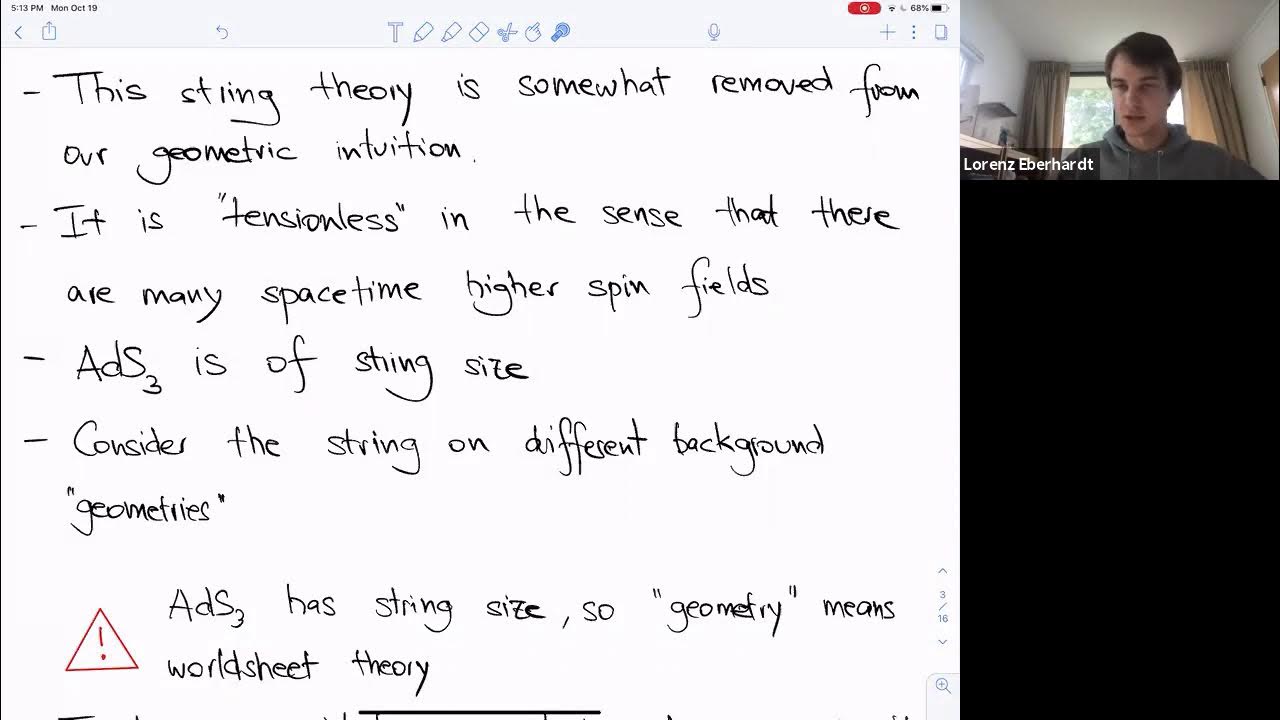 5:13 PM Mon Oct 19
68%
- This string theory is somewhat removed from
our geometric intuition.
- It is "tensionless" in the sense that there
are many spacetime higher spin fields
- AdS₃ is of string size
- Consider the string on different background
"geometries"
AdS₃ has string size, so "geometry" means
worldsheet theory
3
/
16
Lorenz Eberhardt